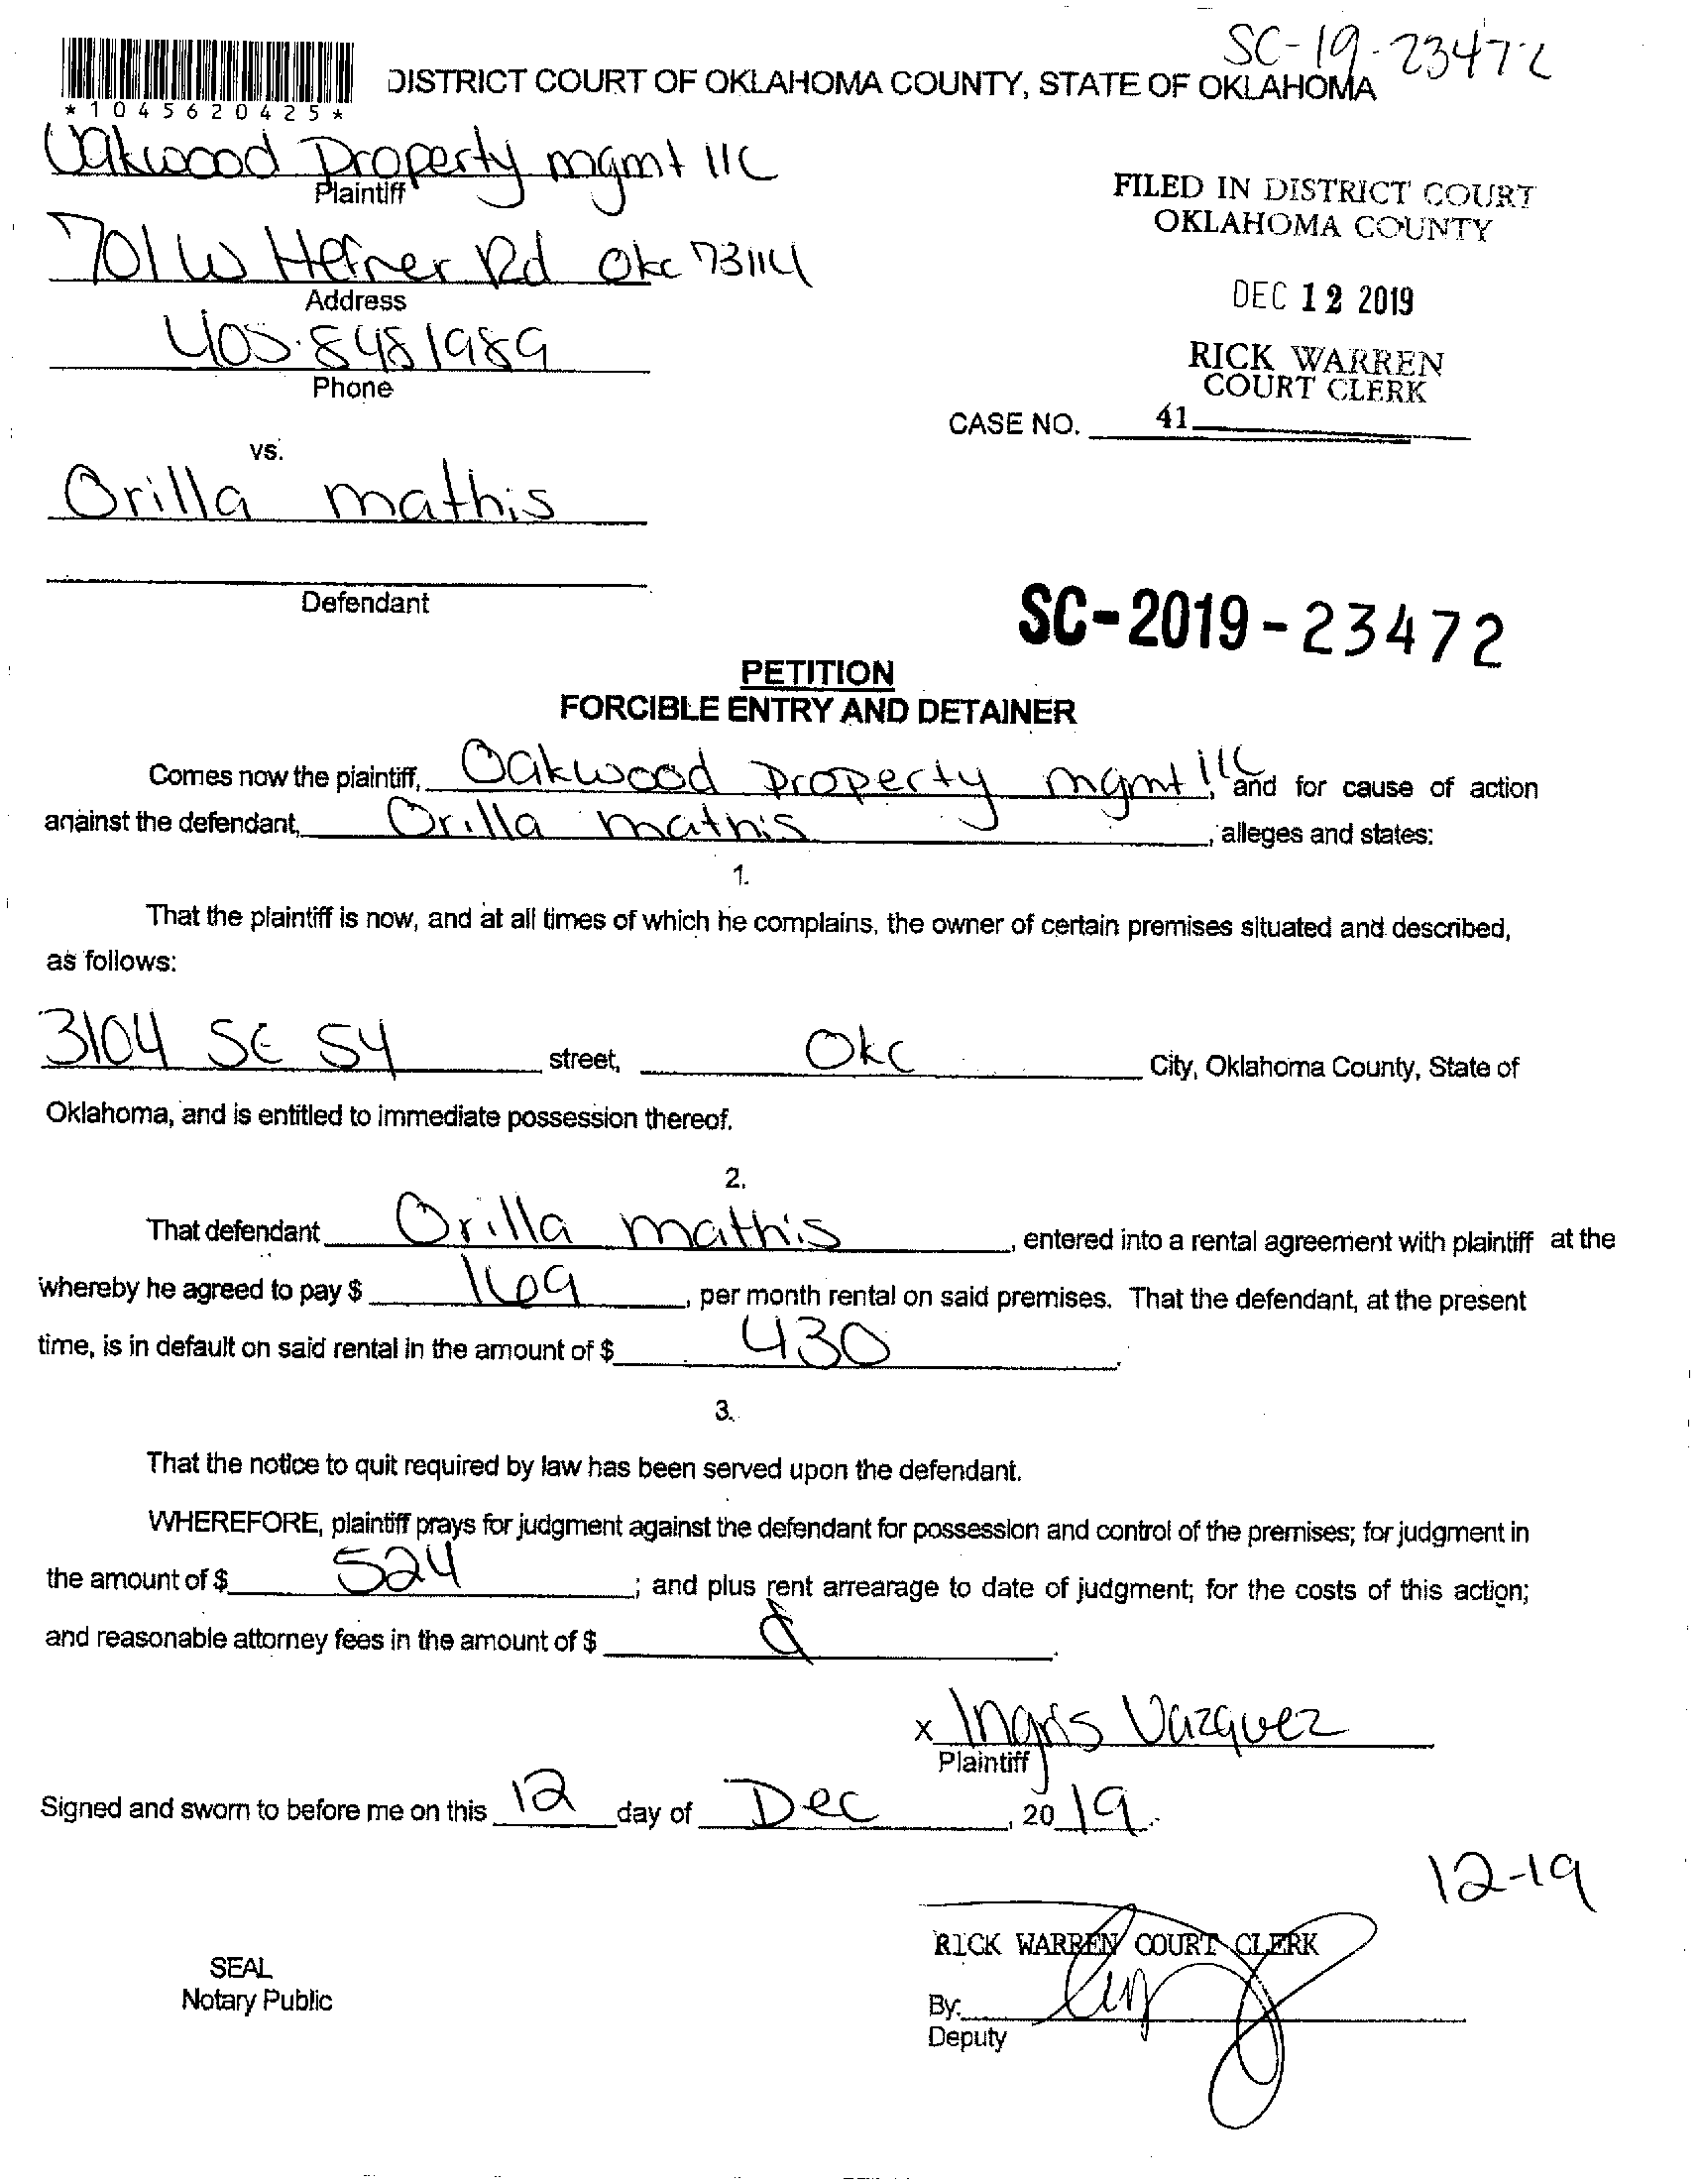 SC-19-23472
DISTRICT COURT OF OKLAHOMA COUNTY, STATE OF OKLAHOMA
*1045620425*
Oakwood Property mgmt llc
Plaintiff
FILED IN DISTRICT COURT
OKLAHOMA COUNTY
701 W Hefner Rd Okc 73114
Address
DEC 12 2019
405.8481989
Phone
RICK WARREN
COURT CLERK
CASE NO. 41
vs.
Orilla mathis
Defendant
SC-2019-23472
PETITION
FORCIBLE ENTRY AND DETAINER
Comes now the plaintiff, Oakwood Property mgmt llc, and for cause of action
against the defendant, Orilla mathis, alleges and states:
1.
That the plaintiff is now, and at all times of which he complains, the owner of certain premises situated and described,
as follows:
3104 SE 54 street, Okc City, Oklahoma County, State of
Oklahoma, and is entitled to immediate possession thereof.
2.
That defendant Orilla mathis, entered into a rental agreement with plaintiff at the
whereby he agreed to pay $ 169, per month rental on said premises. That the defendant, at the present
time, is in default on said rental in the amount of $ 430.
3.
That the notice to quit required by law has been served upon the defendant.
WHEREFORE, plaintiff prays for judgment against the defendant for possession and control of the premises; for judgment in
the amount of $ 524; and plus rent arrearage to date of judgment; for the costs of this action;
and reasonable attorney fees in the amount of $
x Ingris Vazquez
Plaintiff
Signed and sworn to before me on this 12 day of Dec, 2019.
12-19
RICK WARREN COURT CLERK
SEAL
Notary Public
By:
Deputy